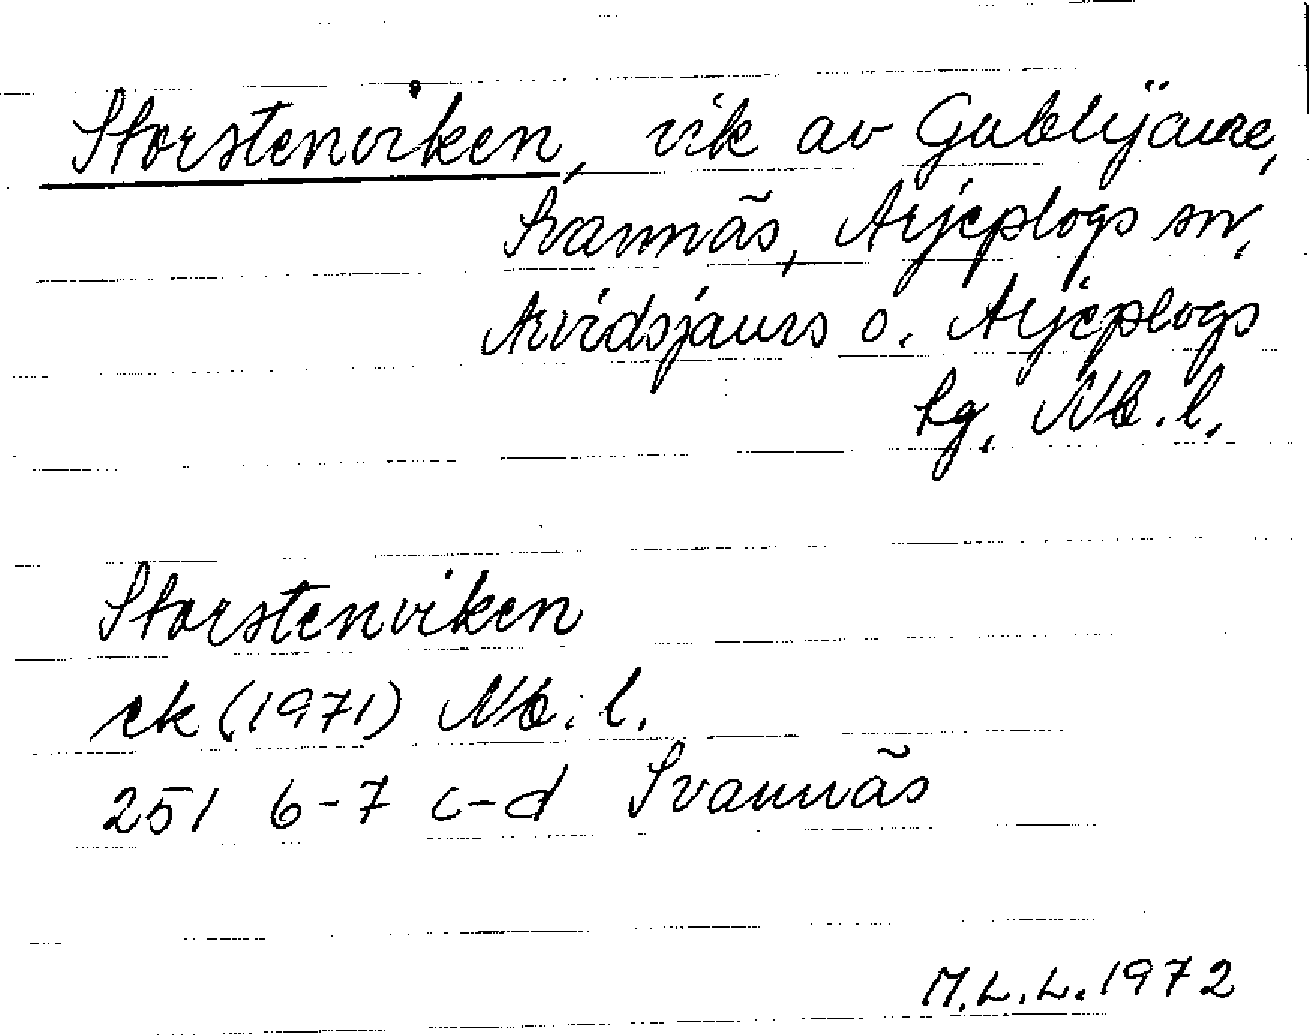 Storstenviken, vik av Gublijaure,
Svannäs, Arjeplogs sn,
Arvidsjaurs o. Arjeplogs
tg, Nb. l.
Storstenviken
ek (1971) Nb. l.
251 6-7 c-d Svannäs
M.L.L. 1972